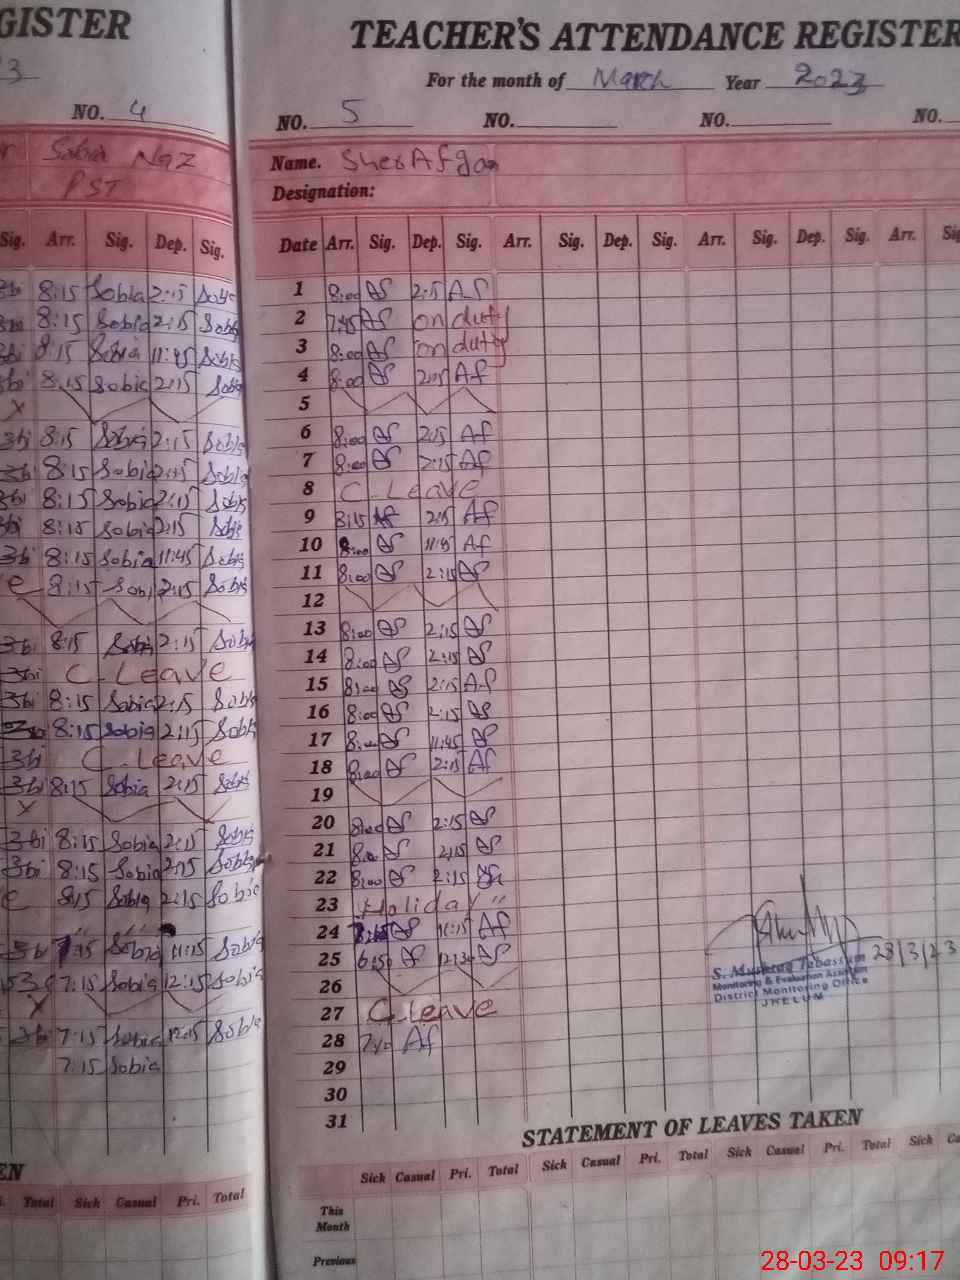 GISTER
3
NO. 4
Sobia Naz
PST
Sig. Arr. Sig. Dep. Sig.
8:15 Sobia 2:15 Sobi
8:15 Sobia 2:15 Sobi
8:15 Sobia 11:45 Sobi
8:15 Sobia 2:15 Sobi
X
8:15 Sobia 2:15 Sobia
8:15 Sobia 2:15 Sobia
8:15 Sobia 2:15 Sobi
8:15 Sobia 2:15 Sobi
8:15 Sobia 11:45 Sobi
e 8:15 Sobi 2:15 Sobi
8:15 Sobi 2:15 Sobi
C. Leave
8:15 Sobia 2:15 Sobi
8:15 Sobia 2:15 Sobi
C. Leave
8:15 Sobia 2:15 Sobi
X
8:15 Sobia 2:15 Sobi
8:15 Sobia 2:15 Sobia
e 8:15 Sobia 2:15 Sobia
7:15 Sobia 11:15 Sobia
7:15 Sobia 12:15 Sobia
X
7:15 Sobia 12:15 Sobia
7:15 Sobia
EN
Total Sick Casual Pri. Total
TEACHER'S ATTENDANCE REGISTER
For the month of March Year 2023
NO. 5 NO. NO. NO.
Name. Sher Afgan
Designation:
Date Arr. Sig. Dep. Sig. Arr. Sig. Dep. Sig. Arr. Sig. Dep. Sig. Arr. Sig
1 8:00 AS 2:15 AS
2 7:45 AS on duty
3 8:00 AS on duty
4 8:00 AS 2:15 Af
5
6 8:00 AS 2:15 Af
7 8:00 AS 2:15 Af
8 C. Leave
9 8:15 Af 2:15 Af
10 8:00 AS 11:45 Af
11 8:00 AS 2:15 AS
12
13 8:00 AS 2:15 AS
14 8:00 AS 2:15 AS
15 8:00 AS 2:15 Af
16 8:00 AS 2:15 AS
17 8:00 AS 11:45 AS
18 8:00 AS 2:15 Af
19
20 8:00 AS 2:15 AS
21 8:00 AS 2:15 AS
22 8:00 AS 2:15
23 Holiday "
24 AS 11:15 Af
25 6:50 AS AS
26
27 C. Leave
28 Af
29
30
31
28/3/23
S. Mushtaq Tabassum
Monitoring & Evaluation Assistant
District Monitoring Office
JHELUM
STATEMENT OF LEAVES TAKEN
Sick Casual Pri. Total Sick Casual Pri. Total Sick Casual Pri. Total Sick Ca
This
Month
Previous
28-03-23 09:17